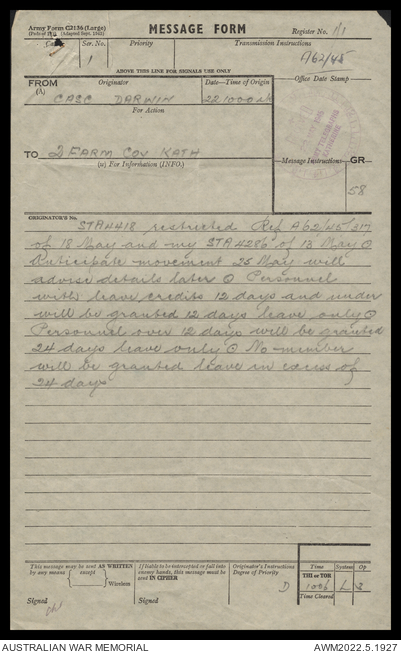 Army Form C2136 (Large)
(Pads of 100) (Adapted Sept. 1942)
MESSAGE FORM
Register No. A1
Ser. No.
Priority
Transmission Instructions
1
A62/45
ABOVE THIS LINE FOR SIGNALS USE ONLY
FROM
(A)
Originator
Date—Time of Origin
Office Date Stamp
CASC DARWIN
221000K
For Action
TO 2 FARM COY KATH
(w) For Information (INFO.)
Message Instructions
GR
58
ORIGINATOR'S No.
STA4418 restricted Ref A62/45/317
of 18 May and my STA4286 of 13 May O
Anticipate movement 25 May will
advise details later O Personnel
with leave credits 12 days and under
will be granted 12 days leave only O
Personnel over 12 days will be granted
24 days leave only O No member
will be granted leave in excess of
24 days
This message may be sent AS WRITTEN
by any means except Wireless
If liable to be intercepted or fall into
enemy hands, this message must be
sent IN CIPHER
Originator's Instructions
Degree of Priority
D
Time
System
Op
THI or TOR
1006 L
Time Cleared
Signed
Signed
AUSTRALIAN WAR MEMORIAL
AWM2022.5.1927